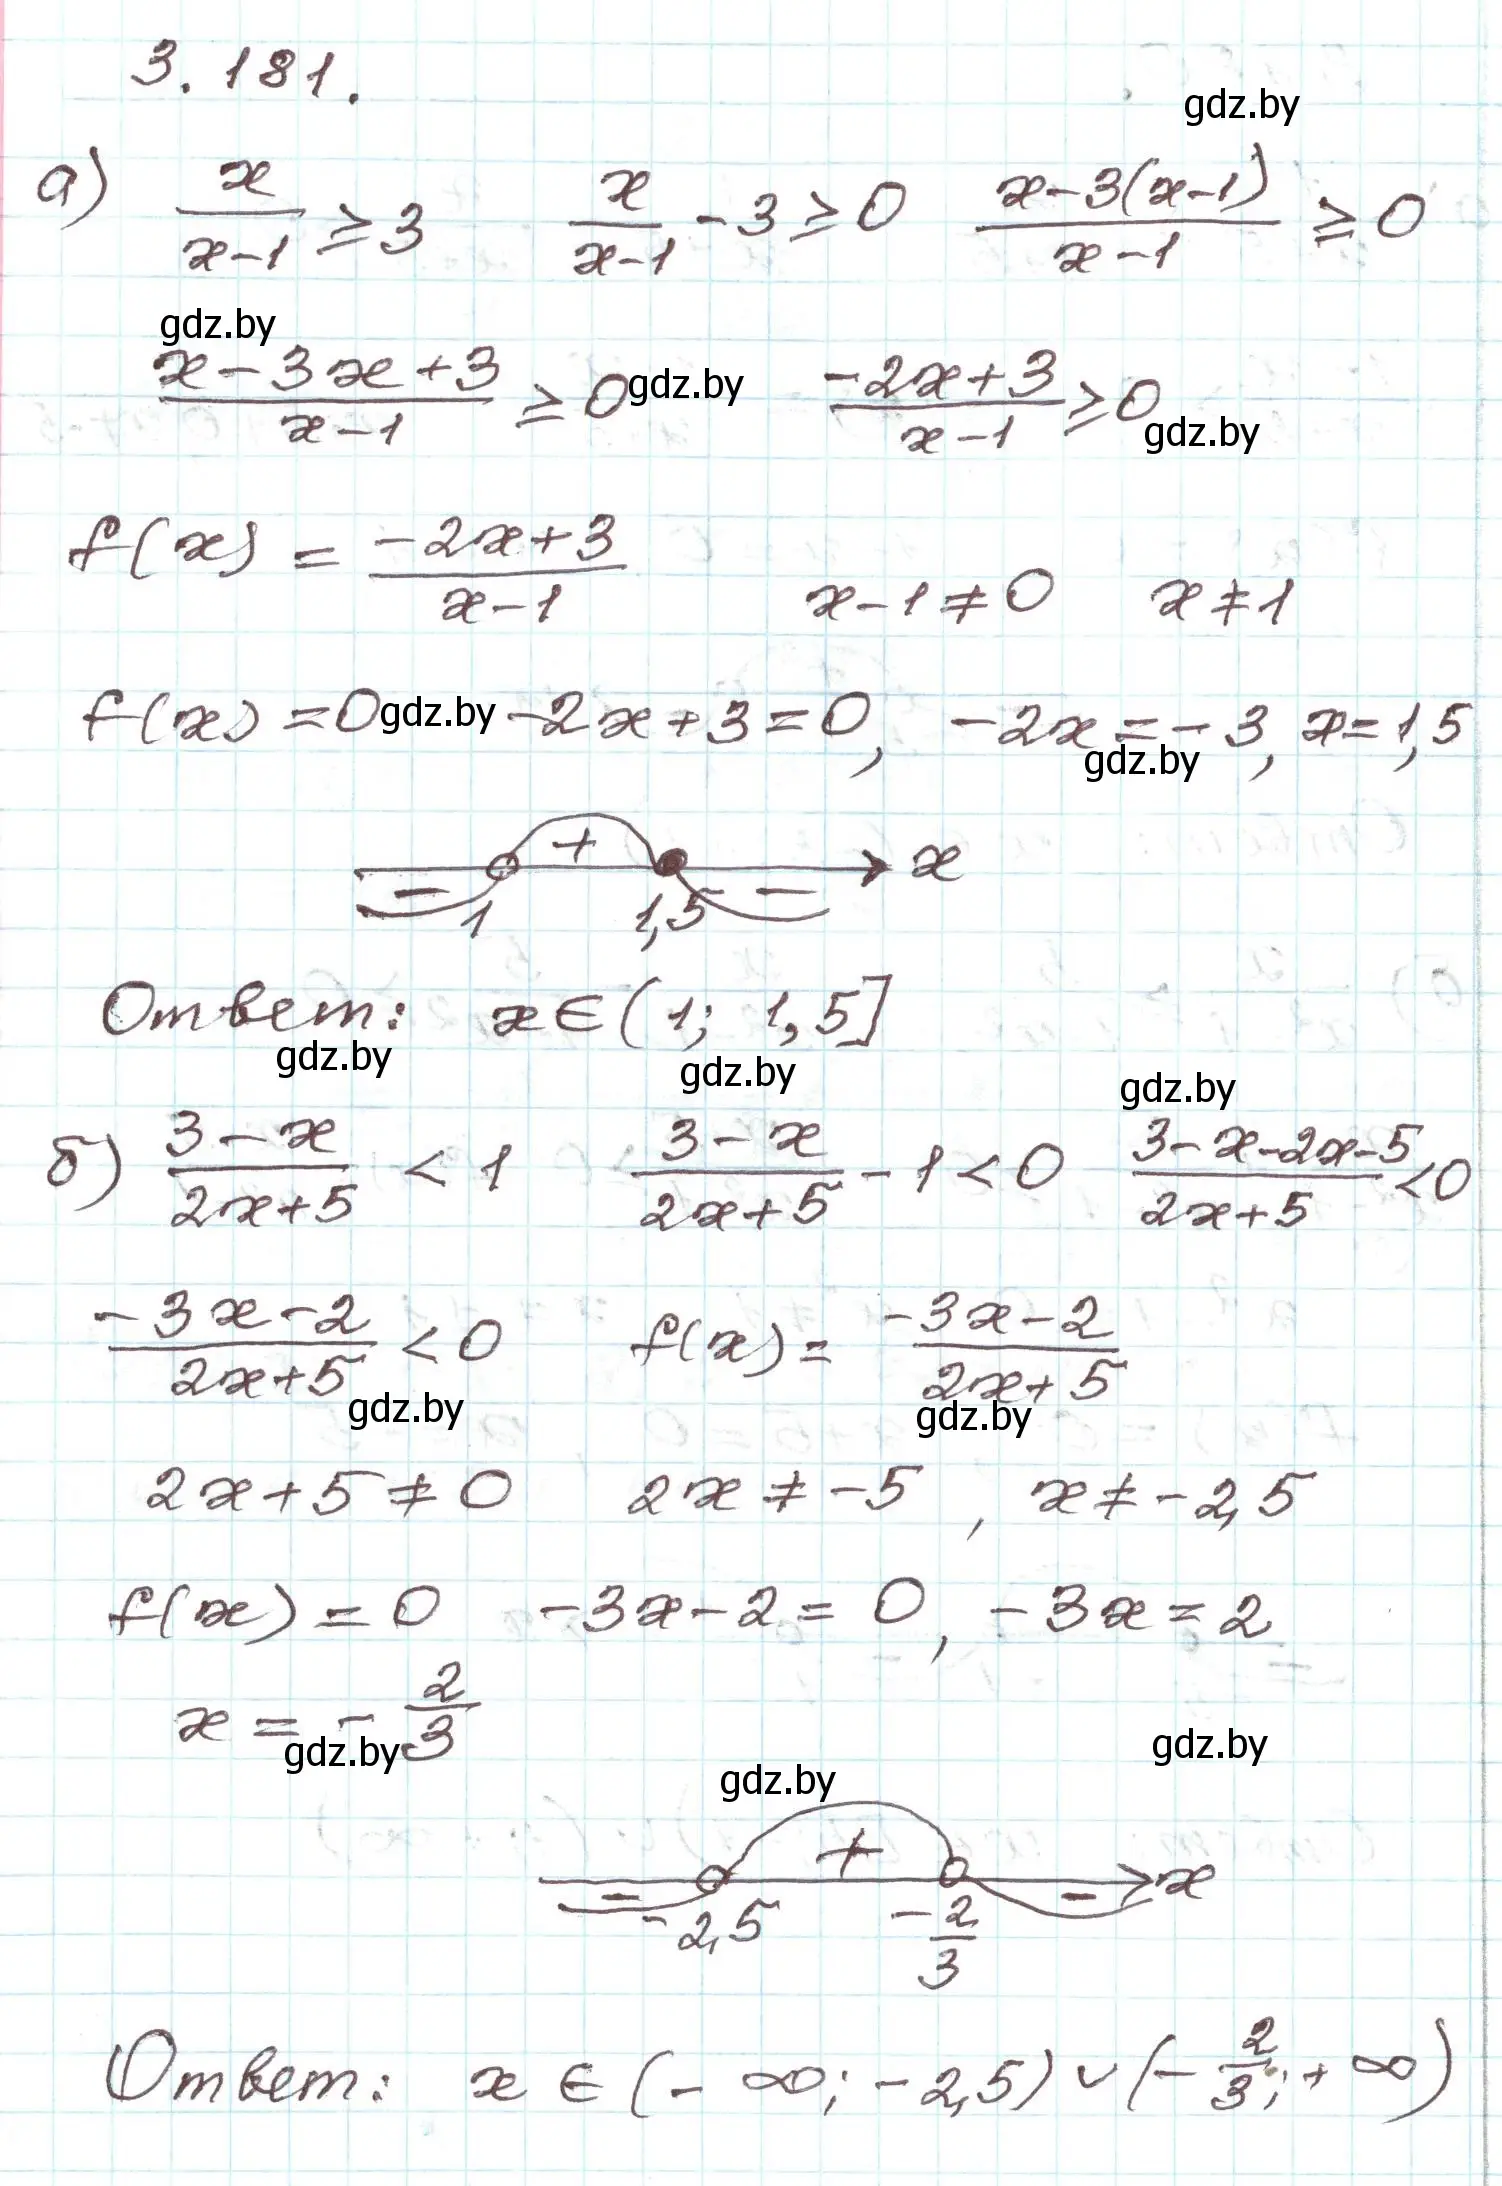 3.181.
gdz.by
а) x/(x-1) ≥ 3   x/(x-1) - 3 ≥ 0   (x-3(x-1))/(x-1) ≥ 0
gdz.by
(x-3x+3)/(x-1) ≥ 0 gdz.by (-2x+3)/(x-1) ≥ 0
gdz.by
f(x) = (-2x+3)/(x-1)   x-1≠0   x≠1
f(x)=0 gdz.by -2x+3=0, -2x=-3, x=1,5
gdz.by
- + - x
1 1,5
Ответ: x∈(1; 1,5]
gdz.by gdz.by gdz.by
б) (3-x)/(2x+5) < 1   (3-x)/(2x+5) - 1 < 0   (3-x-2x-5)/(2x+5) < 0
(-3x-2)/(2x+5) < 0   f(x) = (-3x-2)/(2x+5)
gdz.by gdz.by
2x+5≠0   2x≠-5, x≠-2,5
f(x)=0   -3x-2=0, -3x=2
x = -2/3
gdz.by gdz.by gdz.by
- + - x
-2,5 -2/3
Ответ: x∈(-∞; -2,5)∪(-2/3; +∞)